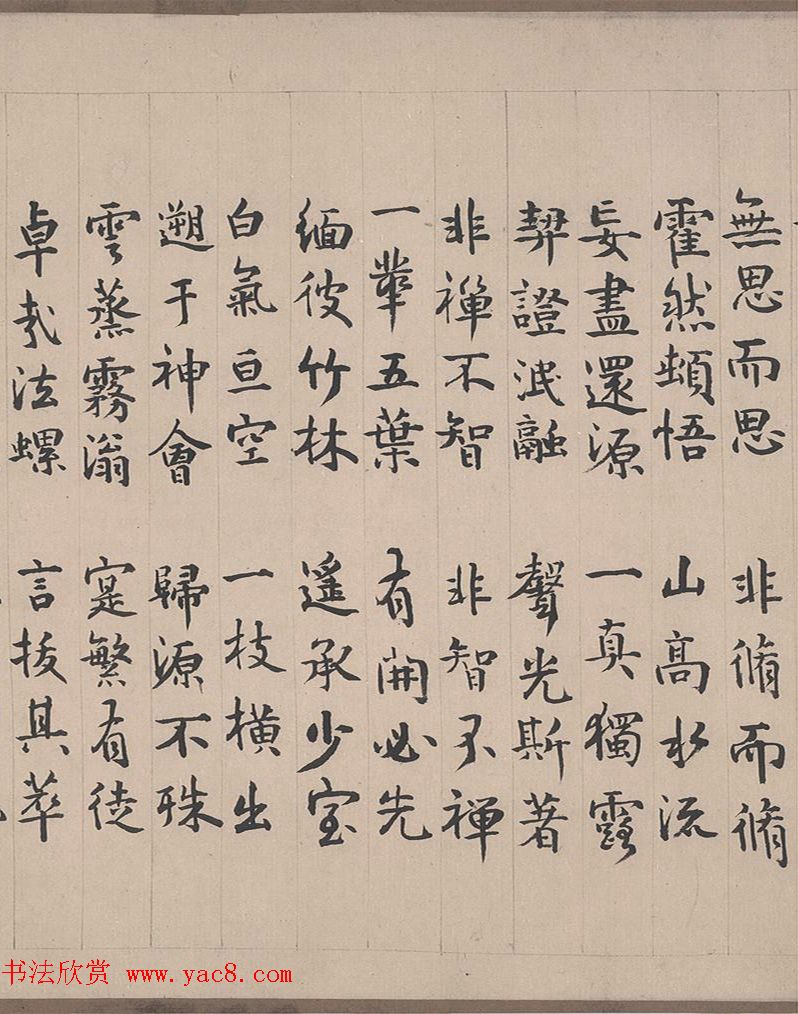 無思而思 非脩而脩
霍然頓悟 山高水流
妄盡還源 一真獨露
契證泯融 聲光斯著
非禪不智 非智不禪
一華五葉 有開必先
緬彼竹林 遙承少室
白氣亘空 一枝橫出
遡于神會 歸源不殊
雲蒸霧滃 寔繁有徒
卓哉法螺 言拔其萃
书法欣赏 www.yac8.com